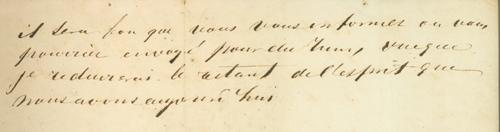 il sera bon que vous vous informer ou vous
pourrier envoyé pour du
je reduirerai le de l'esprit que
nous avons aujourd'hui